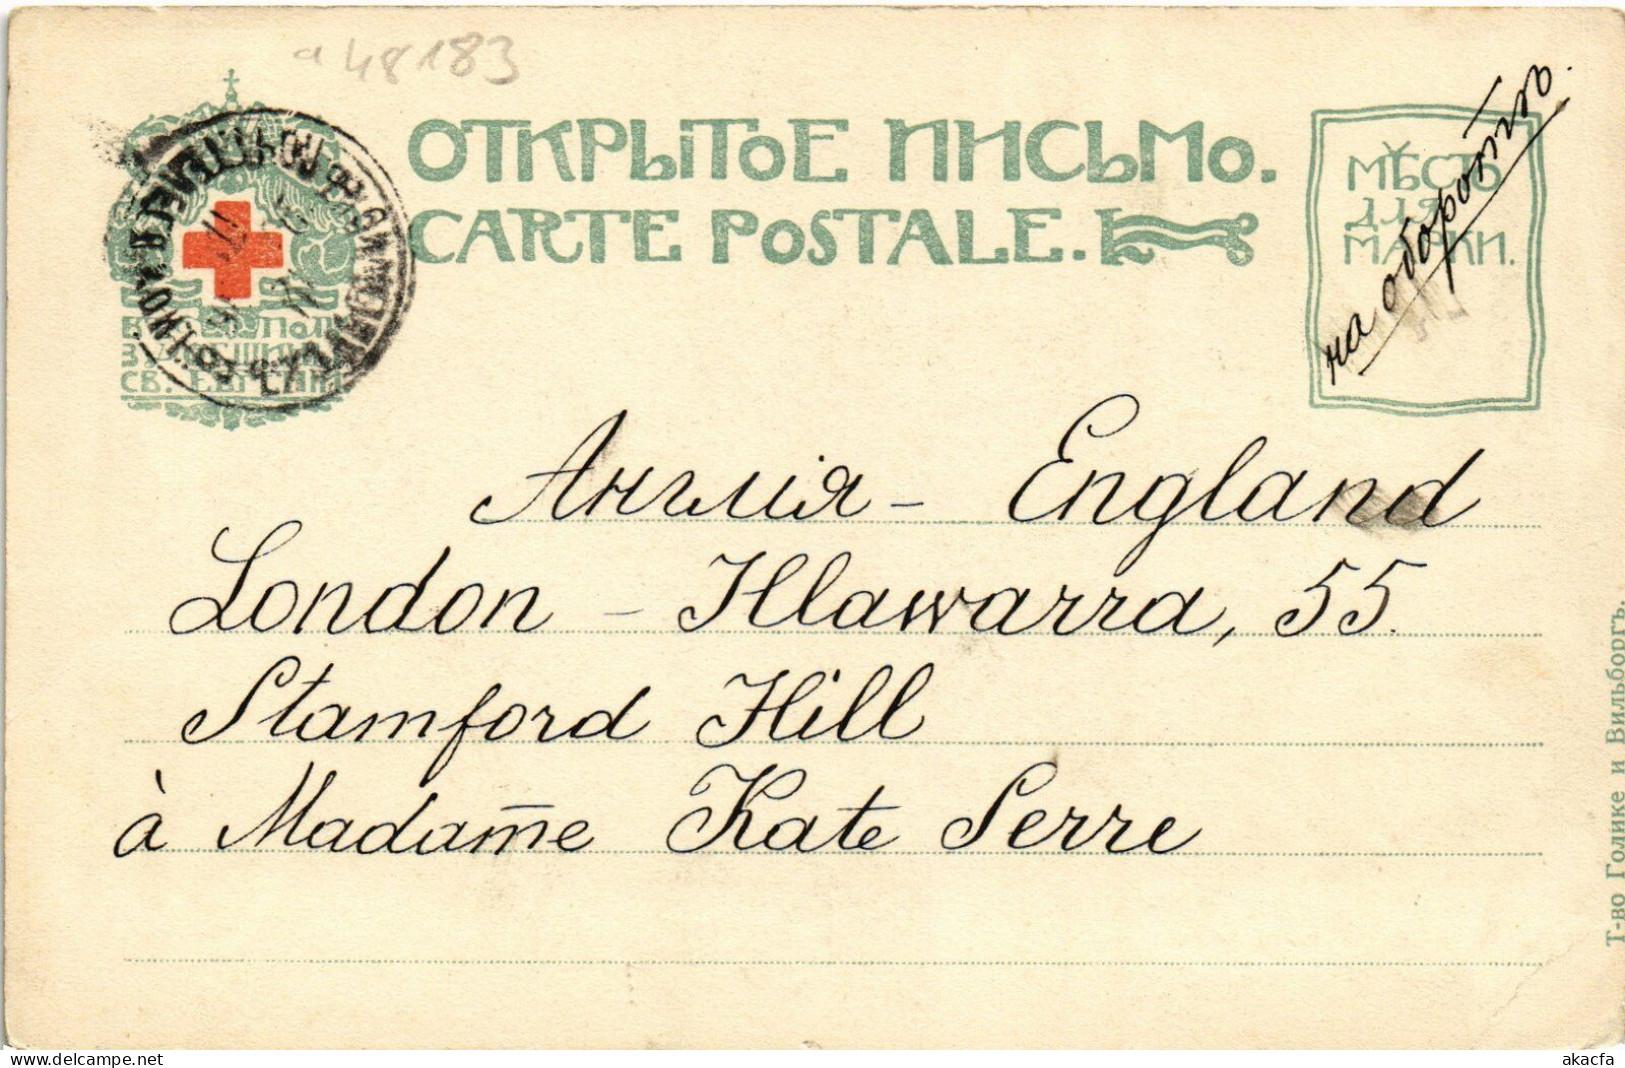 a 48183
ОТКРЫТОЕ ПИСЬМО.
CARTE POSTALE.
МѢСТО
ДЛЯ
МАРКИ.
на оборотѣ.
СВ. ЕВГЕНІИ
Англія - England
London - Illawarra, 55.
Stamford Hill
à Madame Kate Serre
Т-во Голике и Вильборгъ.
akacfa